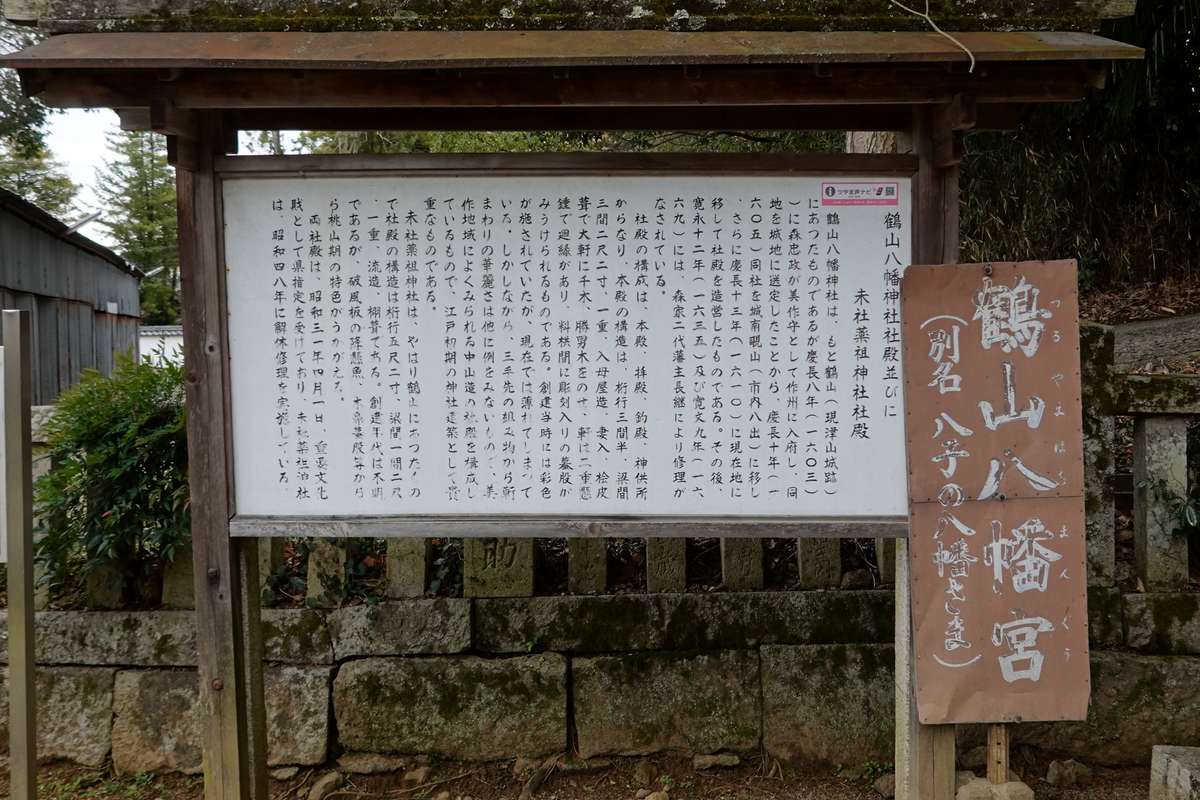 鶴山八幡神社社殿並びに
末社薬祖神社社殿
鶴山八幡神社は、もと鶴山(現津山城跡)
にあつたものであるが慶長八年(一六〇三
)に森忠政が美作守として作州に入府し、同
地を城地に選定したことから、慶長十年(一
六〇五)同社を城南覗山(市内八出)に移し
、さらに慶長十三年(一六一〇)に現在地に
移して社殿を造営したものである。その後、
寛永十二年(一六三五)及び寛文九年(一六
六九)には、森家二代藩主長継により修理が
なされている。
社殿の構成は、本殿、拝殿、釣殿、神供所
からなり、本殿の構造は、桁行三間半、梁間
三間二尺二寸、一重、入母屋造、妻入、桧皮
葺で大軒に千木、勝男木をのせ、軒は二重懸
錘で廻縁があり、料栱間に彫刻入りの蟇股が
みうけられるものである。創建当時には彩色
が施されていたが、現在では薄れてしまって
いる。しかしながら、三手先の組み物から軒
まわりの華麗さは他に例をみないもので、美
作地域によくみられる中山造の社殿を構成し
ているもので、江戸初期の神社建築として貴
重なものである。
末社薬祖神社は、やはり鶴山にあつたもの
で社殿の構造は桁行五尺二寸、梁間一間二尺
、一重、流造、栩葺である。創建年代は不明
であるが、破風板の降懸魚、本幕蟇股等か
ら桃山期の特色がうかがえる。
両社殿は、昭和三一年四月一日、重要文化
財として県指定を受けており、末社薬祖社
は、昭和四八年に解体修理を実施している。
つやま声ナビ
鶴山八幡宮
つるやまはちまんぐう
(別名 八子の八幡さま)
助